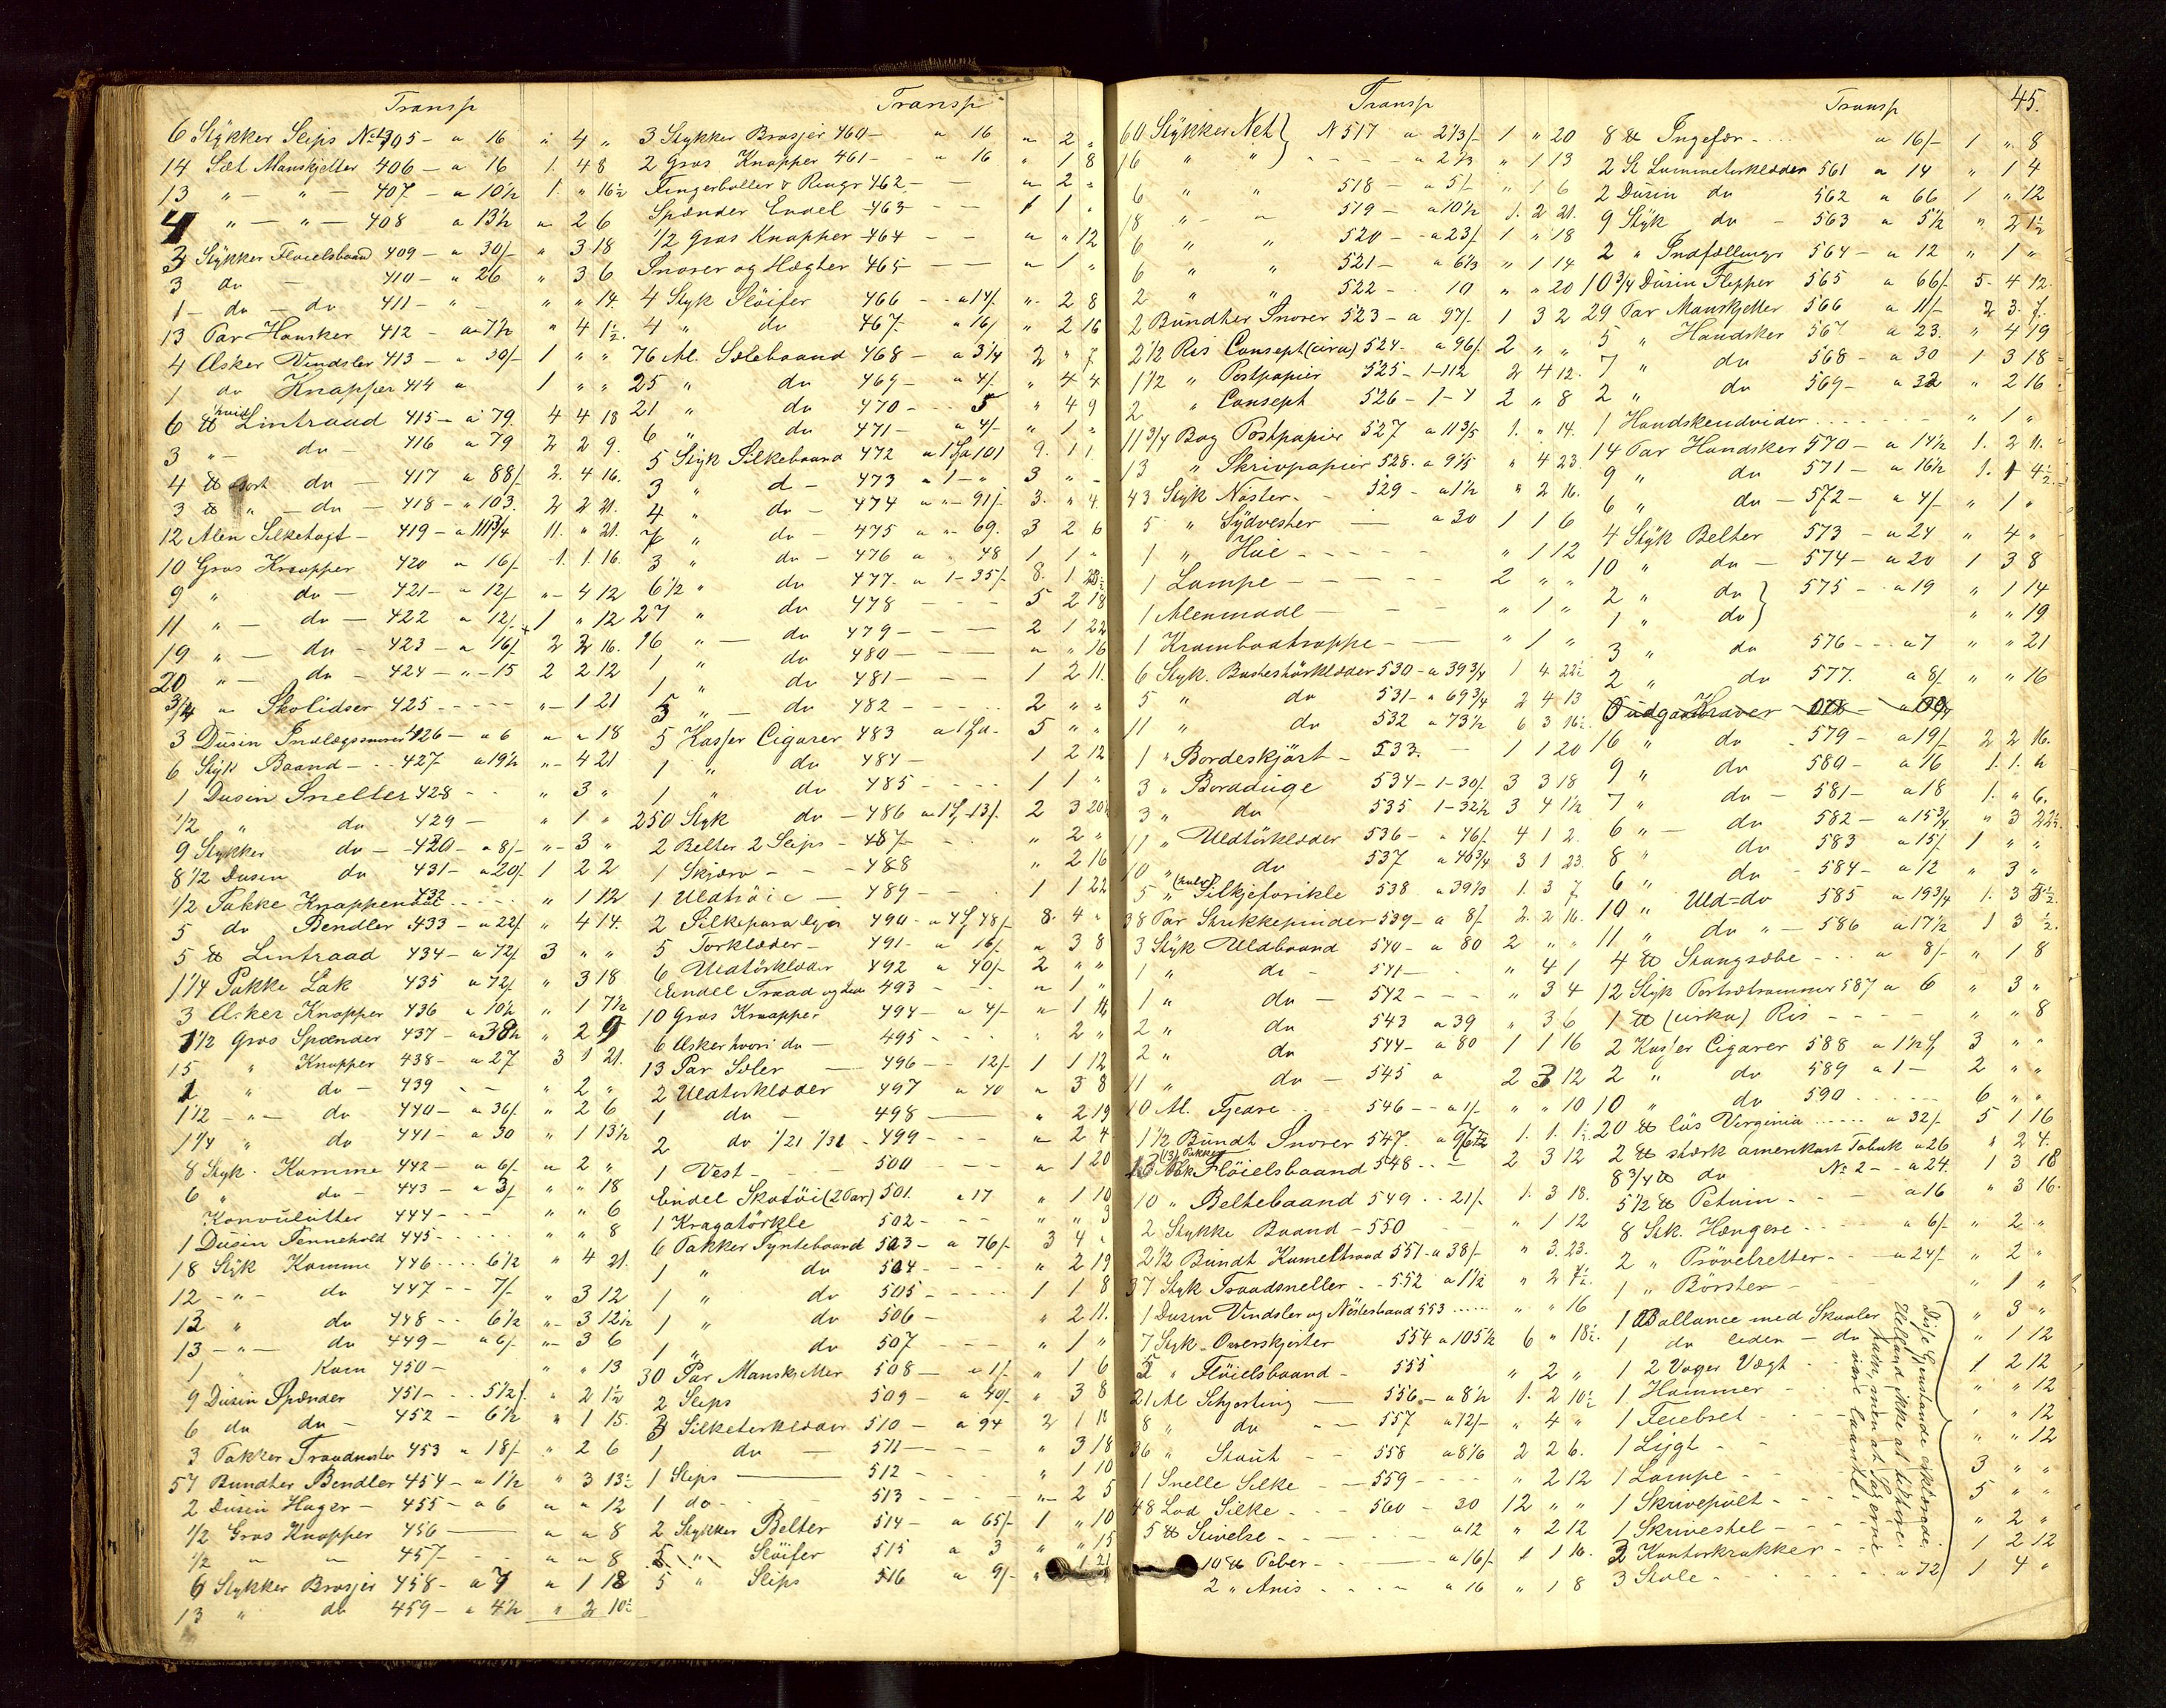 Transp
6 Stykker Slips No 405 - a 16 " 4 "
14 Sæt Manskjetter 406 - a 16 1. 4 8
13 " - " - 407 - a 10 1/2 1. " 16 1/2
4 " - " - 408 a 13 1/2 " 2 6
3 Stykker Floielsbaand 409 - a 30/- " 3 18
3 do - 410 - " 26 " 3 6
1 - do - do 411 - " - " " 14.
13 Par Hansker 412 - a 7 1/2 " 4 1 1/2
4 Æsker Vindsler 413 - a 30/- 1 " "
1 do Knapper 414 a 1 " "
6 ℔ hvid Lintraad 415 - a 79. 4 4 18
3 " - do - 416 a 79 2 2 9.
4 ℔ sort do - 417 a 88/- 2. 4 16.
3 ℔ " - do - 418 - " 103. 2 2 21.
12 Alen Silketoft - 419 - a 111 3/4 11. " 21.
10 Gros Knapper 420 a 16/- 1. 1. 16.
9 " do - 421 - a 12/- " 4 12
11 " - do - 422 a 12/- 1 " 12
19 " - do - 423 - a 16/- 2 2 16.
20 " - do - 424 - " - 15 2 2 12
3/4 " Skolidser 425 - - - - " 1 21
3 Dusin Indlægssnorer 426 - a 6 " " 18
6 Styk Baand - - 427 a 19 1/2 " 4 21
1 Dusin Snelter 428 - - " 3 "
1/2 " do 429 - " 1 "
9 Stykker do - 430 - a 8/- " 3 "
8 1/2 Dusin do 431 - a 20/- 1 2 2
1/2 Pakke Knappenaal 432 - - - " 1 12
5 do Bendler 433 - a 22/- " 4 14.
5 ℔ Lintraad 434 - a 72/- 3 " "
1 1/4 Pakke Lak 435 a 72/- " 3 18
3 Æsker Knapper 436 a 10 1/2 " 1 7 1/2
1 1/2 Gros Spænder 437 - a 38 1/2 " 2 9
15 " Knapper 438 - a 27 3 1 21.
1 " do - 439 - - " 2 "
1 1/2 - " - do 440 - a 36/- " 2 6
1 1/4 " do 441 - a 30 " 1 13 1/2
8 Styk. Kamme 442 - a 6/- " 2 "
6 " do - 443 - a 3/- " " 18
Konvulutter 444 - - - " " 6
1 Dusin Pennehold 445 - - - - " " 8
18 Styk Kamme 446 - - - 6 1/2 " 4 21.
12 - " - do 447 - - 7/- " 3 12
12 " do 448 - - 6 1/2 " 3 12 1/2
13 - " - do 449 - a 6/- " 3 6
1 " Kam 450 - " " 13
9 Dusin Spænder 451 - - - 5 1/2/- " 2 1 1/2
6 do do - 452 - 6 1/2 " 1 15.
3 Pakker Traadnøster 453 a 18/- " 2 6
57 Bundter Bendler 454 - a 1 1/2 " 3 13 1/2
2 Dusin Hager - 455 - a 6 " " 12
1/2 Gros Knapper 456 - " " 8
1/2 " " 457 - - " " 8
6 Stykker Brosjer 458 - a 7 " 1 18
13 " do 459 - a 4 1/2 " 2 10 1/2
Transp
3 Stykker Brosjer 460 - a 16 " 2 "
2 Gros Knapper 461 - - a 16 " 1 8
Fingerbøller & Ringe 462 - - " 2 "
Spænder Endel 463 - - - 1 1 "
1/2 Gros Knapper 464 - - " " 12
Snorer og Hægter 465 - - " 1 "
4 Styk Slöifer 466 - - a 14/- " 2 8
4 " do 467 - a 16/ " 2 16
76 Al. Solebaand 468 - a 3 1/4 2 " 7
25 " do 469 - a 4/- " 4 4
21 " do 470 - - - 5 " 4 9
6 " do 471 - a 4/- " 1 "
5 Styk Silkebaand 472 a 1 101 9. 1 1.
3 " d - 473 a 1 - " 3 " -
4 " do - 474 a " - 91/- 3. " 4.
7 " do - 475 a " - 69. 3 2 6
3 " do - 476 a " 48 1 1 "
6 1/2 " do 477 - a 1 - 35/- 8. 1
27 " do 478 - - - 5 2 18
16 " - do 479 - - - 2 1 22
1 " do 480 - - - " " 16
1 " do 481 - - - 1 2 11.
5 " - do 482 - - - 2 " "
5 Kasser Cigarer 483 5 " "
1 " do 484 - 1 2 12
1 " do 485 - - - - 1 1 "
250 Styk do - 486 13/- 2 3 20
2 Belter 2 Slips - 487 - " 2 "
1 Skjærv - - - 488 " 2 16
1 Uldtröie - 489 - - 1 1 22
2 Silkeparalyer 490 - a 4 48/- 8. 4 "
5 Torklæder - 491 - a 16/- " 3 8
6 Uldtörklæder 492 a 40/- 2 " "
Eendel Traad og 493 - - " 1 "
10 Gros Knapper 494 - a 4/- " 1 16
6 Æsker hvori do - 495 - - - " 2 "
13 Par Soler 496 - - 12/- 1 1 12
2 Uldtorklæder 497 a 40 " 3 8
1 do - 498 - " 2 19
2 do 1/21 1/31 - 499 - - - " 2 4
1 Vest - - - 500 - - " 1 20
Eendel Skotöi (2 Par) 501. a 17 " 1 10
1 Kragatörkle 502 - - - " " 3
6 Pakker Pyntebaand 503 - a 76/- 3 4 "
1 " do 504 - - - - " 2 19
1 " do 505 - - - - 1 1 8
1 " do 506 - " 2 11.
1 " do 507 - - - " 1 "
30 Par Manskjetter 508 - a 1/- " 1 6
2 Slips 509 - a 40/- " 3 8
3 Silketorklæder 510 - a 94 2 1 18
1 do - 511 - - - " 3 18
1 Slips - 512 - - - " 1 10
1 do - - - 513 " 2 5
2 Stykker Belter 514 - a 65/- 1 " 10
5 " Slöifer 515 a 3 " " 15
5 " Slips 516 a 9/- " 1 21
Transp
60 Stykker Net } N 517 a 2 1/3/- 1 " 20
16 " " ) - - - - a 2 1/3 " 1 13
6 " " 518 - a 5/- " 1 6
18 " - " 519 - a 10 1/2 1. 2 21.
6 " " 520 - - a 23/- 1 " 18
6 " " 521 - a 6 1/3 " 1 14
2 " " 522 - - 10 " " 20
2 Bundter Snorer 523 - a 97/- 1 3 2
2 1/2 Ris Consept (circa) 524 - a 96/- 2 " "
1 1/2 " Postpapier 525 - 1 - 112 2 4 12.
2 " Consept 526 - 1 - 4 2 " 8
11 3/4 Bog Postpapier 527 a 11 3/5 1. " 14.
13 " Skrivpapier 528. a 9 1/5 " 4 23.
43 Styk Nöster - - 529 - a 1 1/2 " 2 16.
5 " Sydvester - a 30 1 1 6
1 " Hue - - - - - " 1 12
1 Lampe - - - - - 2 " "
1 Alenmaal - - - " 1 "
1 Krambodtrappe - - " 1 "
6 Styk. Bostestörklæder 530 - a 39 3/4 1 4 22 1/2
5 " do 531 - a 69 3/4 2 4 13
11 " do 532 a 73 1/2 6 3 16 1/2
1 " Bordeskjört - 533. - 1 1 20
3 " Borduge 534 - 1 - 30/- 3 3 18
3 " do 535 1 - 32 1/2 3 4 1 1/2
11 " Uldtörklæder 536 - a 46/- 4 1 2.
10 " do 537 a 46 3/4 3 1 23.
5 " (halv) Silkjetorikle 538 a 39 1/3 1. 3 7
38 Par Strikkepinder 539 - a 8/- 2. 2 16.
3 Styk Uldbaand 540 - a 80 2 " "
1 " do - 541 - - " 4 1
1 " do - 542 - - - " 3 4
2 " do 543 a 39 " 3 6
2 " do 544 - a 80 1 1 16
11 " do - 545 a 2 3 12
10 Al. Fjedre - - 546 - - a 1/- " " 10
1 1/2 Bundt Snorer 547. 1. 1. 1 1/2
13 (3 Pakker) Flöielsbaand 548 - - - 2 3 12
10 " Beltebaand 549 - - 21/- 1. 3 18.
2 Stykke Baand - 550 " 1 12
2 1/2 Bundt Kameltraad 551 - a 38/- " 3. 23.
37 Styk Traadsneller - - 552 a 1 1/2 " 2 7 1/2
1 Dusin Vindsler og Nöstesbaand 553 - - - " " 16
7 Styk - Overskjorter 554 a 105 1/2 6 " 18 1/2
5 " Flöielsbaand - 555 " 2 "
21 Al Schjorting - 556 - a 8 1/2 1. 2 10 1/2
8 " do - - 557 a 12/- " 4 "
36 " Stout - 558 a 8 1/6 2 2 6.
1 Snelle Silke - 559 - - - - " 2 12
48 Lod Silke - 560 - 30 12 " "
5 ℔ Stivelse - - - - - a 12 " 2 12
10 ℔ Peber - - - - a 16/- 1 1 16.
2 " Anis - - - - a 16 " 1 8
Transp 45.
8 ℔ Ingefær - - - a 16/- 1 " 8
2 St Lummetorklæder 561 a 14 " 1 4
2 Dusin do 562 a 66 1 " 12
9 Styk do - 563 a 5 1/2 " 2 1 1/2
2 " Indfællinger 564 - a 12 " 1 "
10 3/4 Dusin Flipper 565 a 66/- 5 - 4 12.
29 Par Manskjetter 566 a 11/- 2 3. 7.
5 " Handsker 567 a 23. " 4 19
7 " do 568 - a 30 1 3 18
2 " do 569 - a 32 " 2 16
1 Handskeudvider - - - - - " 1 "
14 Par Handsker 570 - a 14 1/2 1. 2 11.
9 " do 571 - a 16 1/2 1. 1 4 1/2
6 " do - 572 - a 4/- " 1 "
4 Styk Belter 573 - a 24 " 4 "
10 " do - 574 - a 20 1 3 8
2 " do } 575 - - a 19 " 1 14
1 " do } " " 19
3 " do 576 - - - a 7 " " 21
2 " do 577. a 8/- " " 16
16 " do - 579 - a 19/- 2 2 16.
9 " do 580 - a 16 1. 1. 6
7 " do - 581 - a 18 1. " 6.
6 " - do 582 - a 15 3/4 " 3 22 1/2
8 " do 583 a 15/- 1 " "
6 " do - 584 - a 12 " 3 "
10 " Uld=do 585 a 19 3/4 1. 3
11 " do " - 586 a 17 1/2 1 3 1/2.
4 ℔ Stangsæbe - - - a 8/- " 1 8
12 Styk Portrætrammer 587 a 6 " 3 "
1 ℔ (cirka) Ris - - - - " " 8
2 Kasser Cigarer 588 a 1 1/2 3 " "
2 " do 589 a 1 - 2 " "
10 " do 590 - - - - - 6 " "
20 ℔ lös Virginia - - - - - a 32/- 5 1 16
2 ℔ stærk amerikansk Tabak a 26 " 2 4.
8 3/4 ℔ do No 2 - - a 24. 1 3 18
5 1/2 ℔ Petum - - - a 16 " 3 16.
8 Stk. Hængere - - - a 6/- " 2 "
2 " Prövebretter - - a 24/- " 2 "
1 " Börster - " 1 "
1 Ballance med Skaaler " 3 "
1 do uden - do " 1 12
1 2 Voger Vægt - 1 2 12
1. Hammer - " " 12
1 Feiebret - - " " 12
1 Lygt - - " " 12
1 Lampe - - 3 " "
1 Skrivepult - - 5 " "
1 Skrivestel - - - " 2 "
2 Kontorkrakker - - 1 2 12
3 Stole - - - - - - a 72 1 4 "
Disse Gjenstande opklarede
Helland ikke at tilhöre
ham, men at Lagerne
vare laante.